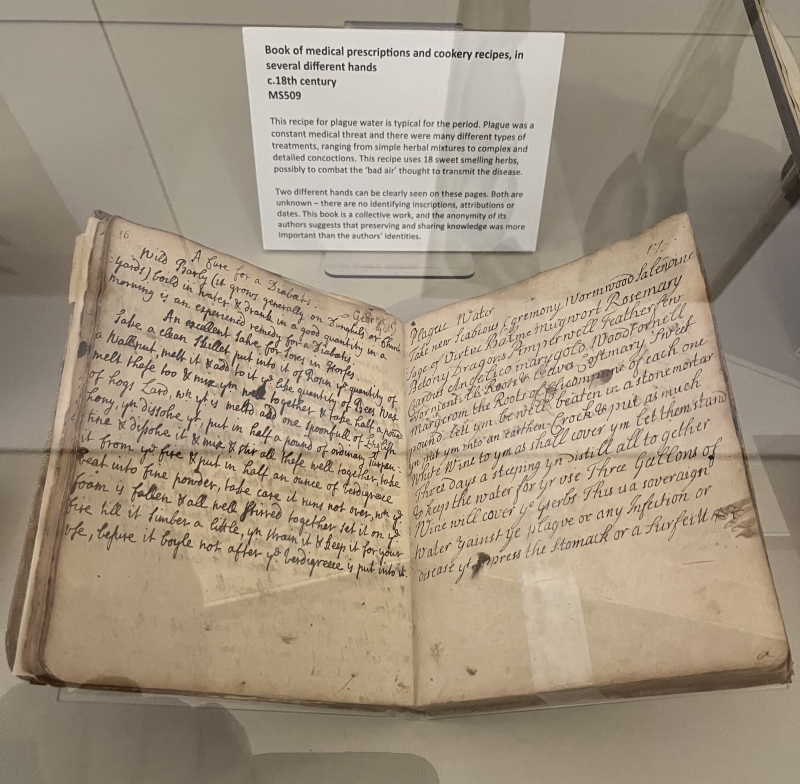 Book of medical prescriptions and cookery recipes, in
several different hands
c.18th century
MS509
This recipe for plague water is typical for the period. Plague was a
constant medical threat and there were many different types of
treatments, ranging from simple herbal mixtures to complex and
detailed concoctions. This recipe uses 18 sweet smelling herbs,
possibly to combat the 'bad air' thought to transmit the disease.
Two different hands can be clearly seen on these pages. Both are
unknown – there are no identifying inscriptions, attributions or
dates. This book is a collective work, and the anonymity of its
authors suggests that preserving and sharing knowledge was more
important than the authors' identities.
16
A Cure for a Diabetis
Wild Parly (it grows generally on Dunghils or Church
:yards) boild in water & drank in a good quantity in a
morning is an experienced remedy for a Diabetis
An excellent Salve for Sores in Horses
Take a clean Skillet put into it of Rosin ye quantity of
a Wallnut, melt it & add to it ye like quantity of Bees Wax
melt these too & mix ym well together & take half a pound
of hogs Lard, wn yt is melted add one spoonfull of English
hony, yn dissolve yt, put in half a pound of ordinary Turpen-
tine & dissolve it & mix & stir all these well together, take
it from ye fire & put in half an ounce of verdigreece
beat into fine powder, take care it runs not over, wn ye
foam is fallen & all well stirred together set it on ye
fire till it simber a little, yn strain it & keep it for your
use, before it boyle not after ye verdigreece is put into it.
17
Plague Water
Take new Scabious Egremony Wormwood
Sage of Virtue Balme Mugwort Rosemary
Betony Dragons Pimpernell Feather few
Cardus Angelico marygold Wood Sorrell
Tormentill Roots & Leaves Costmary Sweet
Margerom the Roots of Elicompane of each one
pound. lett ym be well beaten in a stone mortar
yn put ym into an earthen Crock & put as much
White Wine to ym as shall cover ym let them stand
Three days a steeping yn distill all to gether
& keep the water for yr use Three Gallons of
Wine will cover ye Herbs This is a soveraign
water gainst ye plague or any Infection or
disease yt oppress the Stomack or a Surfeitt